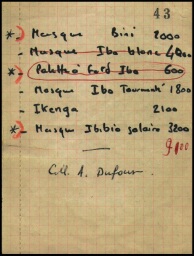 43
* - Masque Bini 2000
- Masque Ibo blanc 4000
* - Palette à fard Ibo 600
- Masque Ibo Tourmenté 1800
- Ikenga 2100
* - Masque Ibibio polaire 3200
9100
Coll. A. Dufour